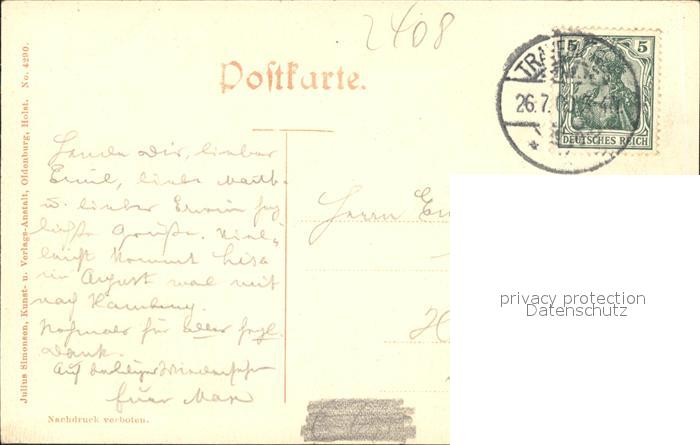 2408
Postkarte.
5 5
DEUTSCHES REICH
26.7.
Sende Dir, lieber
Emil, liebe
u. lieber Erwin
Grüße. Viel-
leicht kommt Lisa
im August mal mit
nach Hamburg.
Nochmals für alles
Dank.
Auf Wiedersehn
Euer Max
Herrn
privacy protection
Datenschutz
Julius Simonsen, Kunst- u. Verlags-Anstalt, Oldenburg, Holst. No. 4290.
Nachdruck verboten.